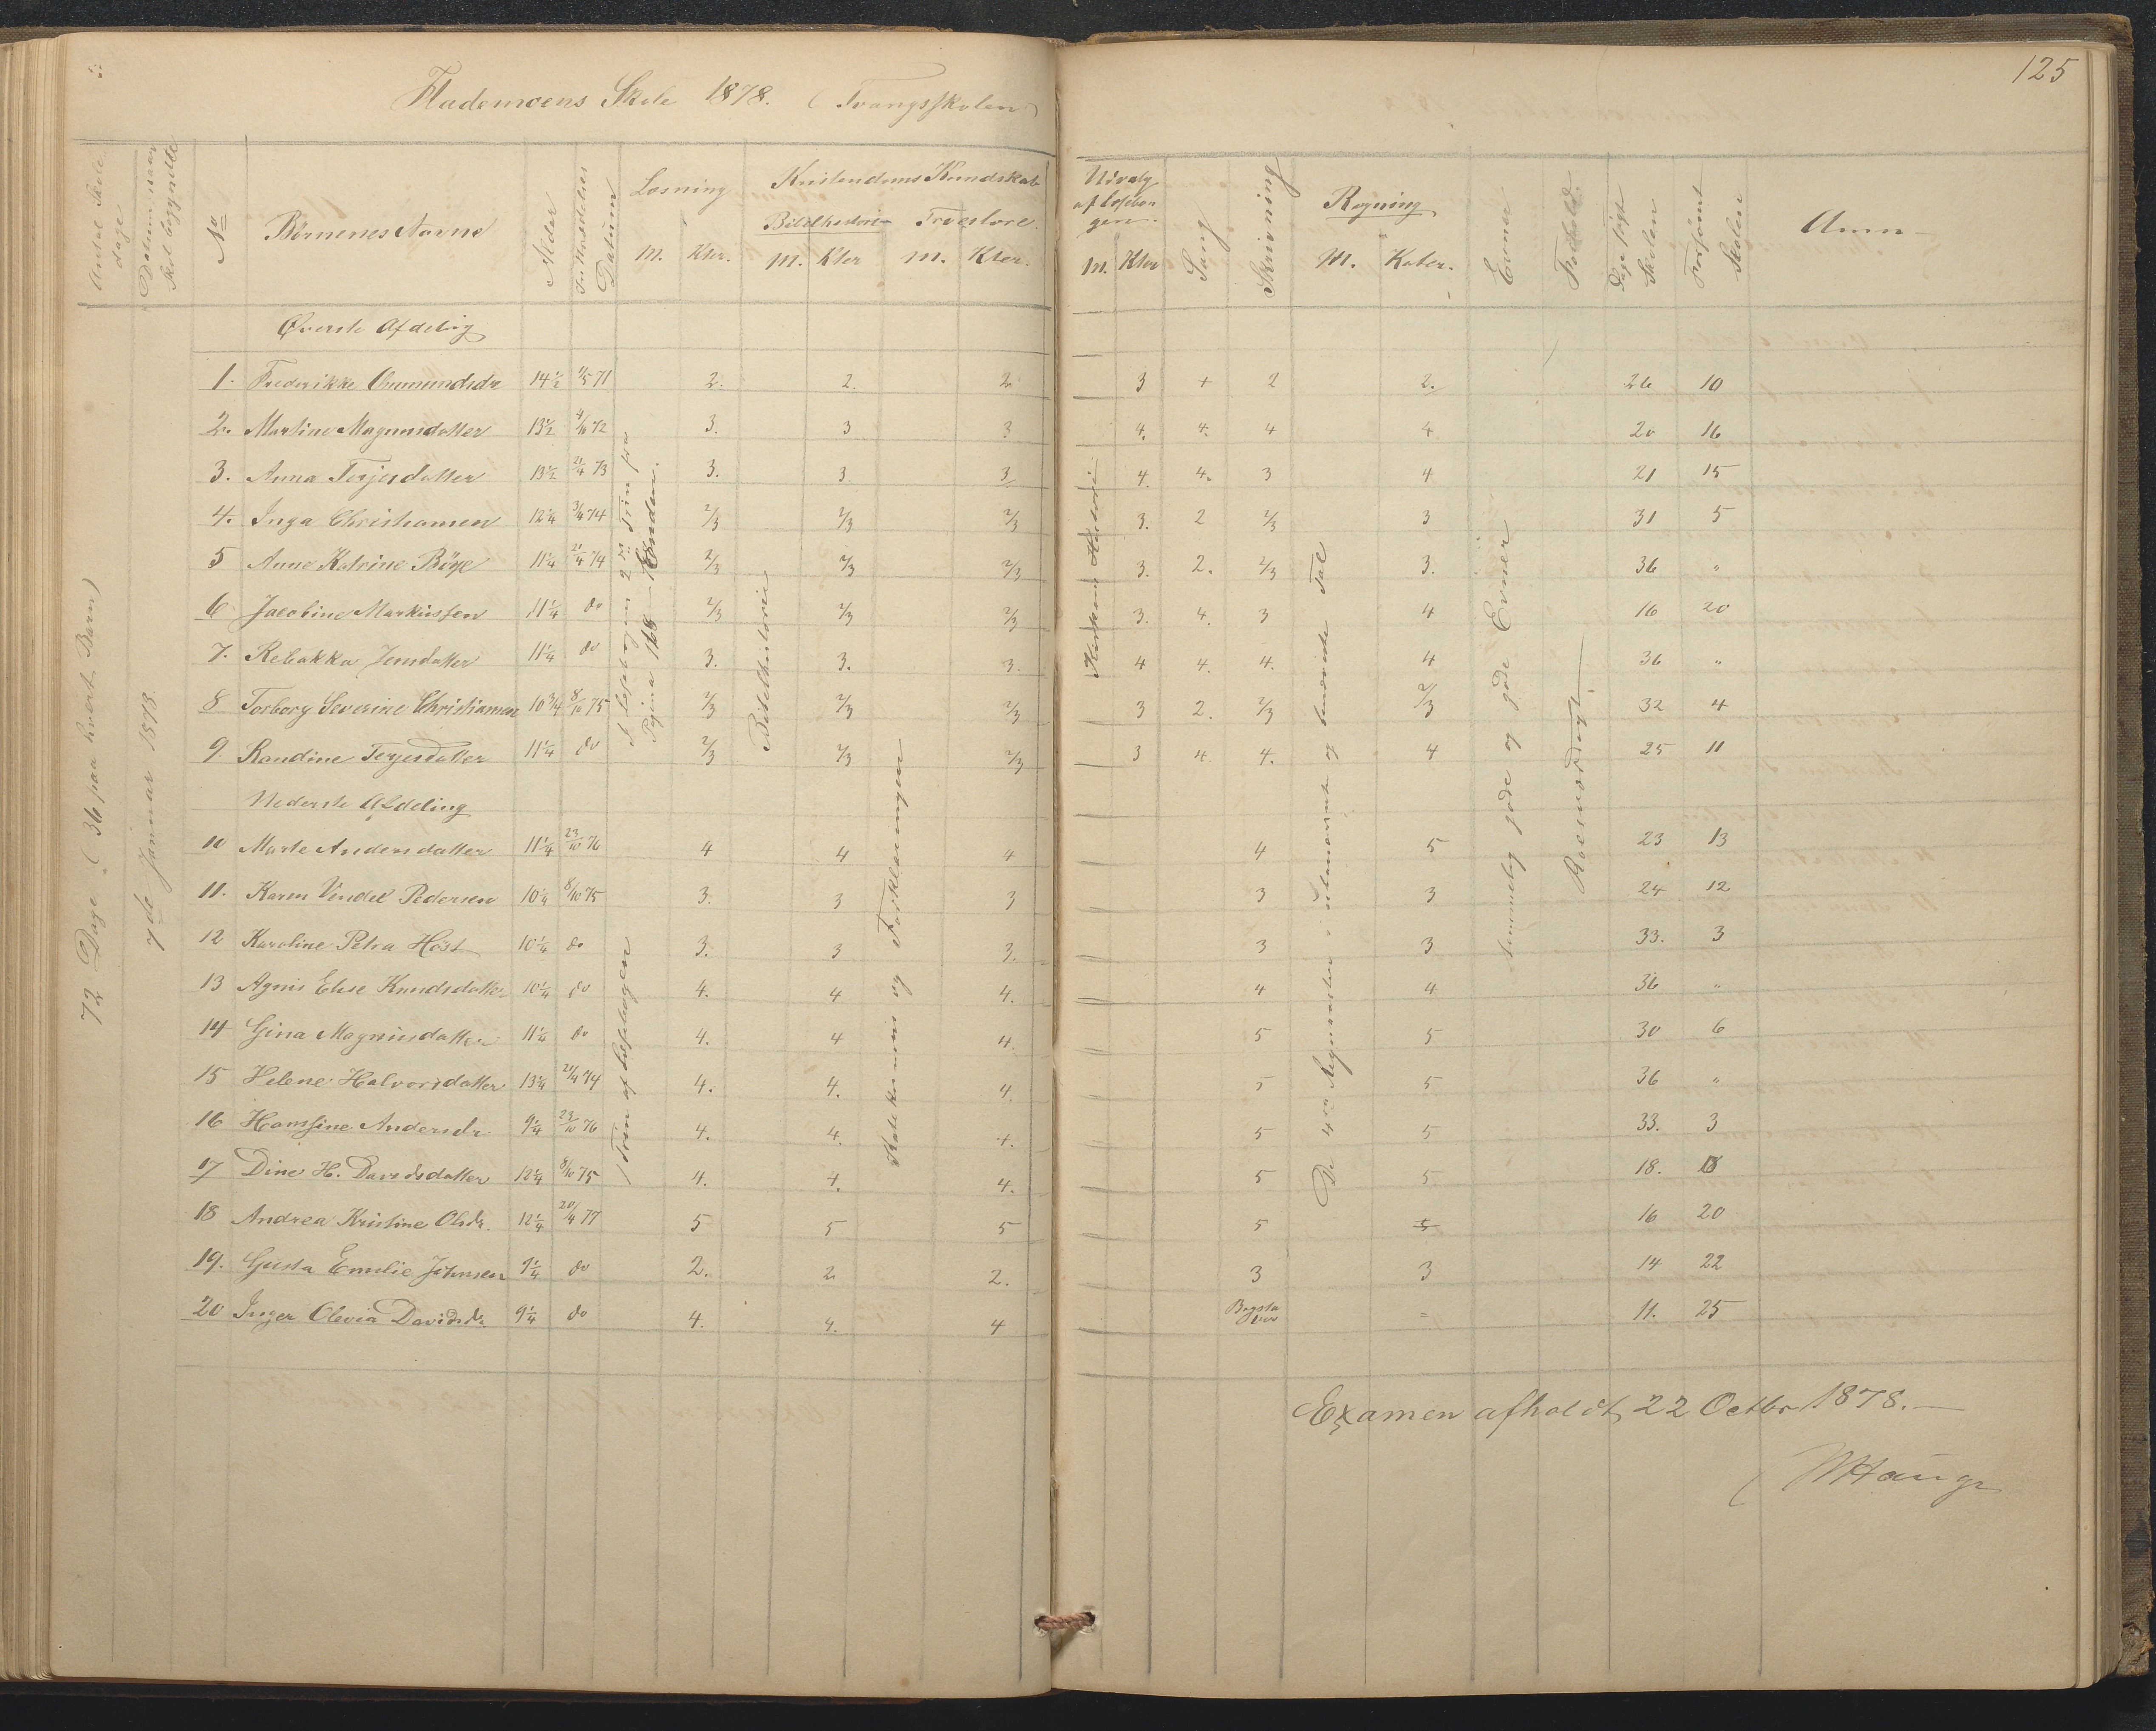 125
Flademoens Skole 1878. (Tvangsskolen)
Antal Skoledage
Datum naar Skol. begyndte
No
Børnenes Navne
Alder
Indtrædelses Datum
Læsning
M. Kter.
Kristendoms Kundskab
Bibelhistorie
Troeslære
M. Kter
M. Kter.
Udvalg af Læsebogen.
M. Kter
Sang
Skrivning
Regning
M. Kater.
Evner
Forhold
Dage søgt Skolen
Forsømt Skolen
Anm
72 Dage (36 paa hvert Barn)
7de Januar 1878.
Øverste Afdeling
1. Frederikke Gunmundsdr 14½ 71 2. 2. 2 3 + 2 2. 26 10
2. Martine Magnusdatter 13½ 4/10 72 3. 3 3 4. 4. 4 4 20 16
3. Anna Terjesdatter 13½ 21/4 73 3. 3 3 4. 4. 3 4 21 15
4. Inga Christiansen 12¼ 74 2/3 2/3 2/3 3. 2 2/3 3 31 5
5 Anne Katrine Böye 11¼ 21/4 74 2/3 2/3 2/3 3. 2. 2/3 3. 36 "
6 Jacobine Markussen 11¼ do 2/3 2/3 2/3 3. 4. 3 4 16 20
7. Rebakka Jensdatter 11¼ do 3. 3. 3. 4 4. 4. 4 36 "
8 Torborg Severine Christiansen 10¾ 8/10 75 2/3 2/3 2/3 3 2. 2/3 2/3 32 4
9. Randine Terjesdatter 11¼ do 2/3 2/3 2/3 3 4. 4. 4 25 11
Nederste Afdeling
10 Marte Andersdatter 11¼ 23/10 76 4 4 4 4 5 23 13
11. Karen Vendel Pedersen 10¼ 8/10 75 3. 3 3 3 3 24 12
12 Karoline Petra Höst 10¼ do 3. 3 3. 3 3 33. 3
13 Agnes Elise Knudsdatter 10¼ do 4. 4 4. 4 4 36 "
14 Gina Magnusdatter 11¼ do 4. 4 4. 5 5 30 6
15 Helene Halvorsdatter 13¼ 21/4 74 4. 4. 4. 5 5 36 "
16 Hansine Andersdr 9¼ 23/10 76 4. 4. 4. 5 5 33. 3
17 Dine H. Davidsdatter 12¼ 8/10 75 4. 4. 4. 5 5 18. 18
18 Andrea Kristine Olsdr. 12¼ 20/4 77 5 5 5 5 5 16 20
19. Gusta Emilie Johnsen 9¼ do 2. 2 2. 3 3 14 22
20 Inger Olevia Davidsdr. 9¼ do 4. 4. 4 Bogstaver = 11. 25
I Læsebogen 2det Trin fra Pagina 168 Enden.
1 Trin af Læsebogen
Bibelhistorie
Katekismus og Forklaringen
Historie
De 4 Regnearter i ubenævnte og benævnte Tal
temmelig gode og gode Evner
Roesværdigt
Examen afholdt 22 Octbr 1878.
MHauge